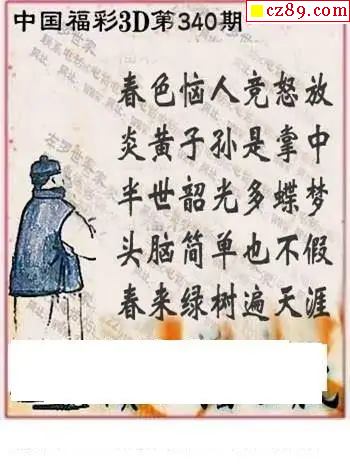 cz89.com
中国福彩3D第340期
春色恼人竞怒放
炎黄子孙是掌中
半世韶光多蝶梦
头脑简单也不假
春来绿树遍天涯